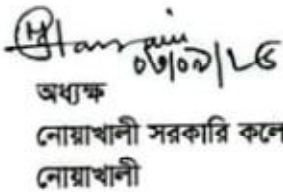 ০৩/০৯/২৫
অধ্যক্ষ
নোয়াখালী সরকারি কলে
নোয়াখালী